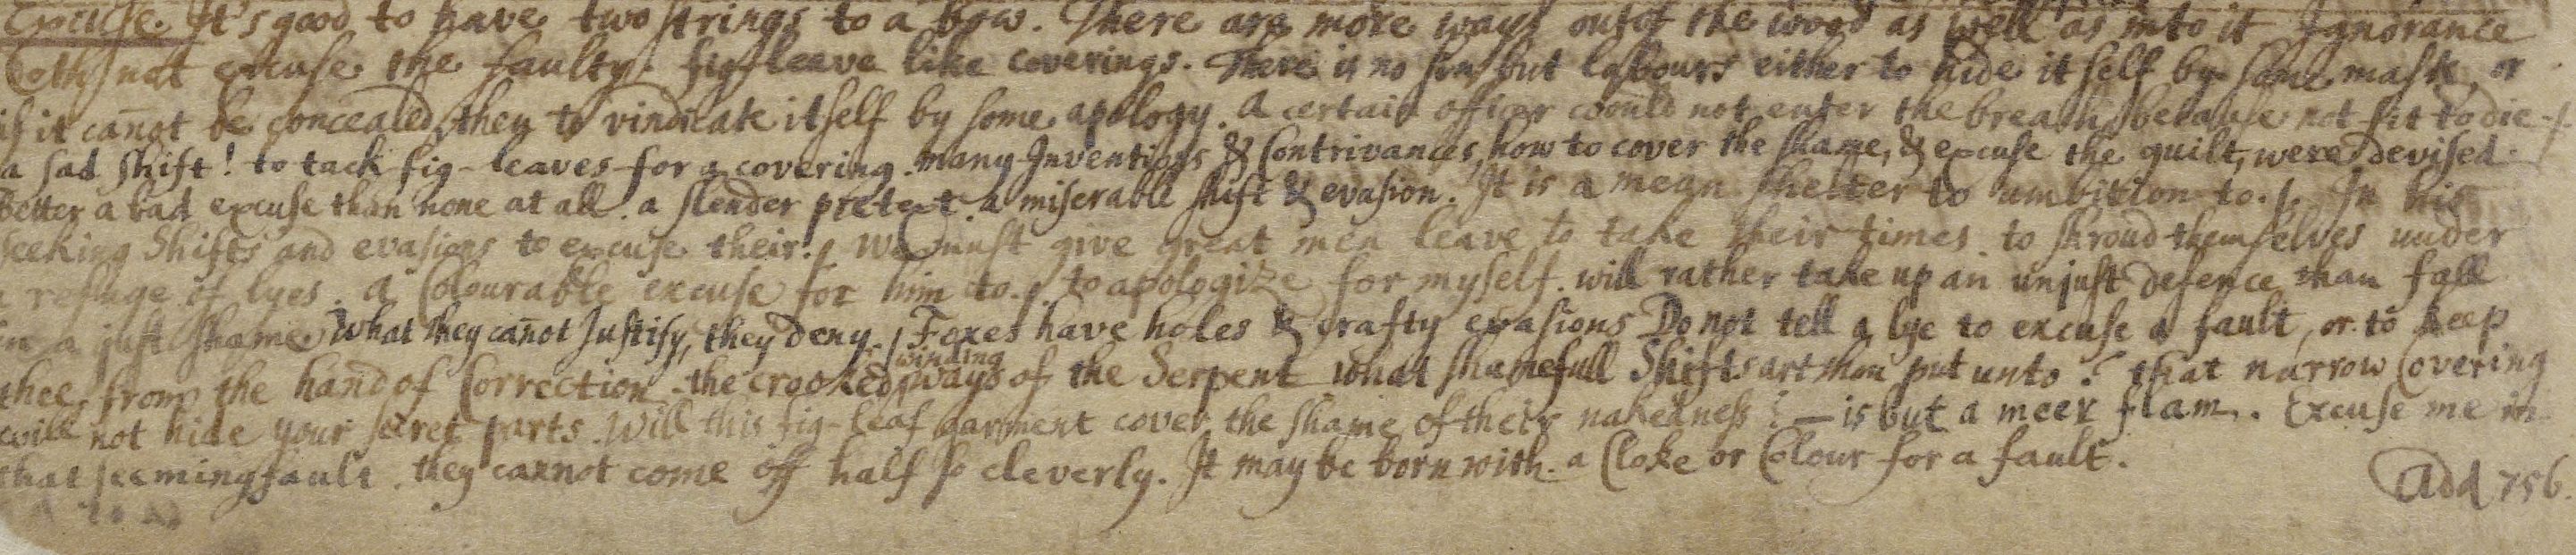 Excuse. It's good to have two strings to a bow. There are more ways out of the wood as well as into it Ignorance
doth not excuse the faulty. fig-leave like coverings. There is no sin but labours either to hide it self by some mask, or
if it cañot be concealed, then to vindicate itself by some apology. A certain officer would not enter the breach, because not fit to die -/.
a sad shift! to tack fig-leaves for a covering. many Inventions & Contrivances, how to cover the shame, & excuse the guilt, were devised.
Better a bad excuse than none at all. a slender pretext. a miserable shift & evasion. It is a mean shelter to ambition to./. In his
seeking Shifts and evasions to excuse their./ We must give great men leave to take their times. to shroud themselves under
a refuge of lyes. a Colourable excuse for him to./. to apologize for myself. will rather take up an unjust defence than fall
in a just shame. What they cañot Justify, they deny./ Foxes have holes & crafty evasions Do not tell a lye to excuse a fault, or to keep
winding
thee from the hand of Correction. the crooked ways of the Serpent what shamefull Shifts art thou put unto? that narrow Covering
will not hide your secret parts. Will this fig-leaf garment cover the shame of their nakedness? — is but a meer flam. Excuse me in
that seeming fault. they cannot come off half so cleverly. It may be born with. a Cloke or Colour for a fault.
Add 756.